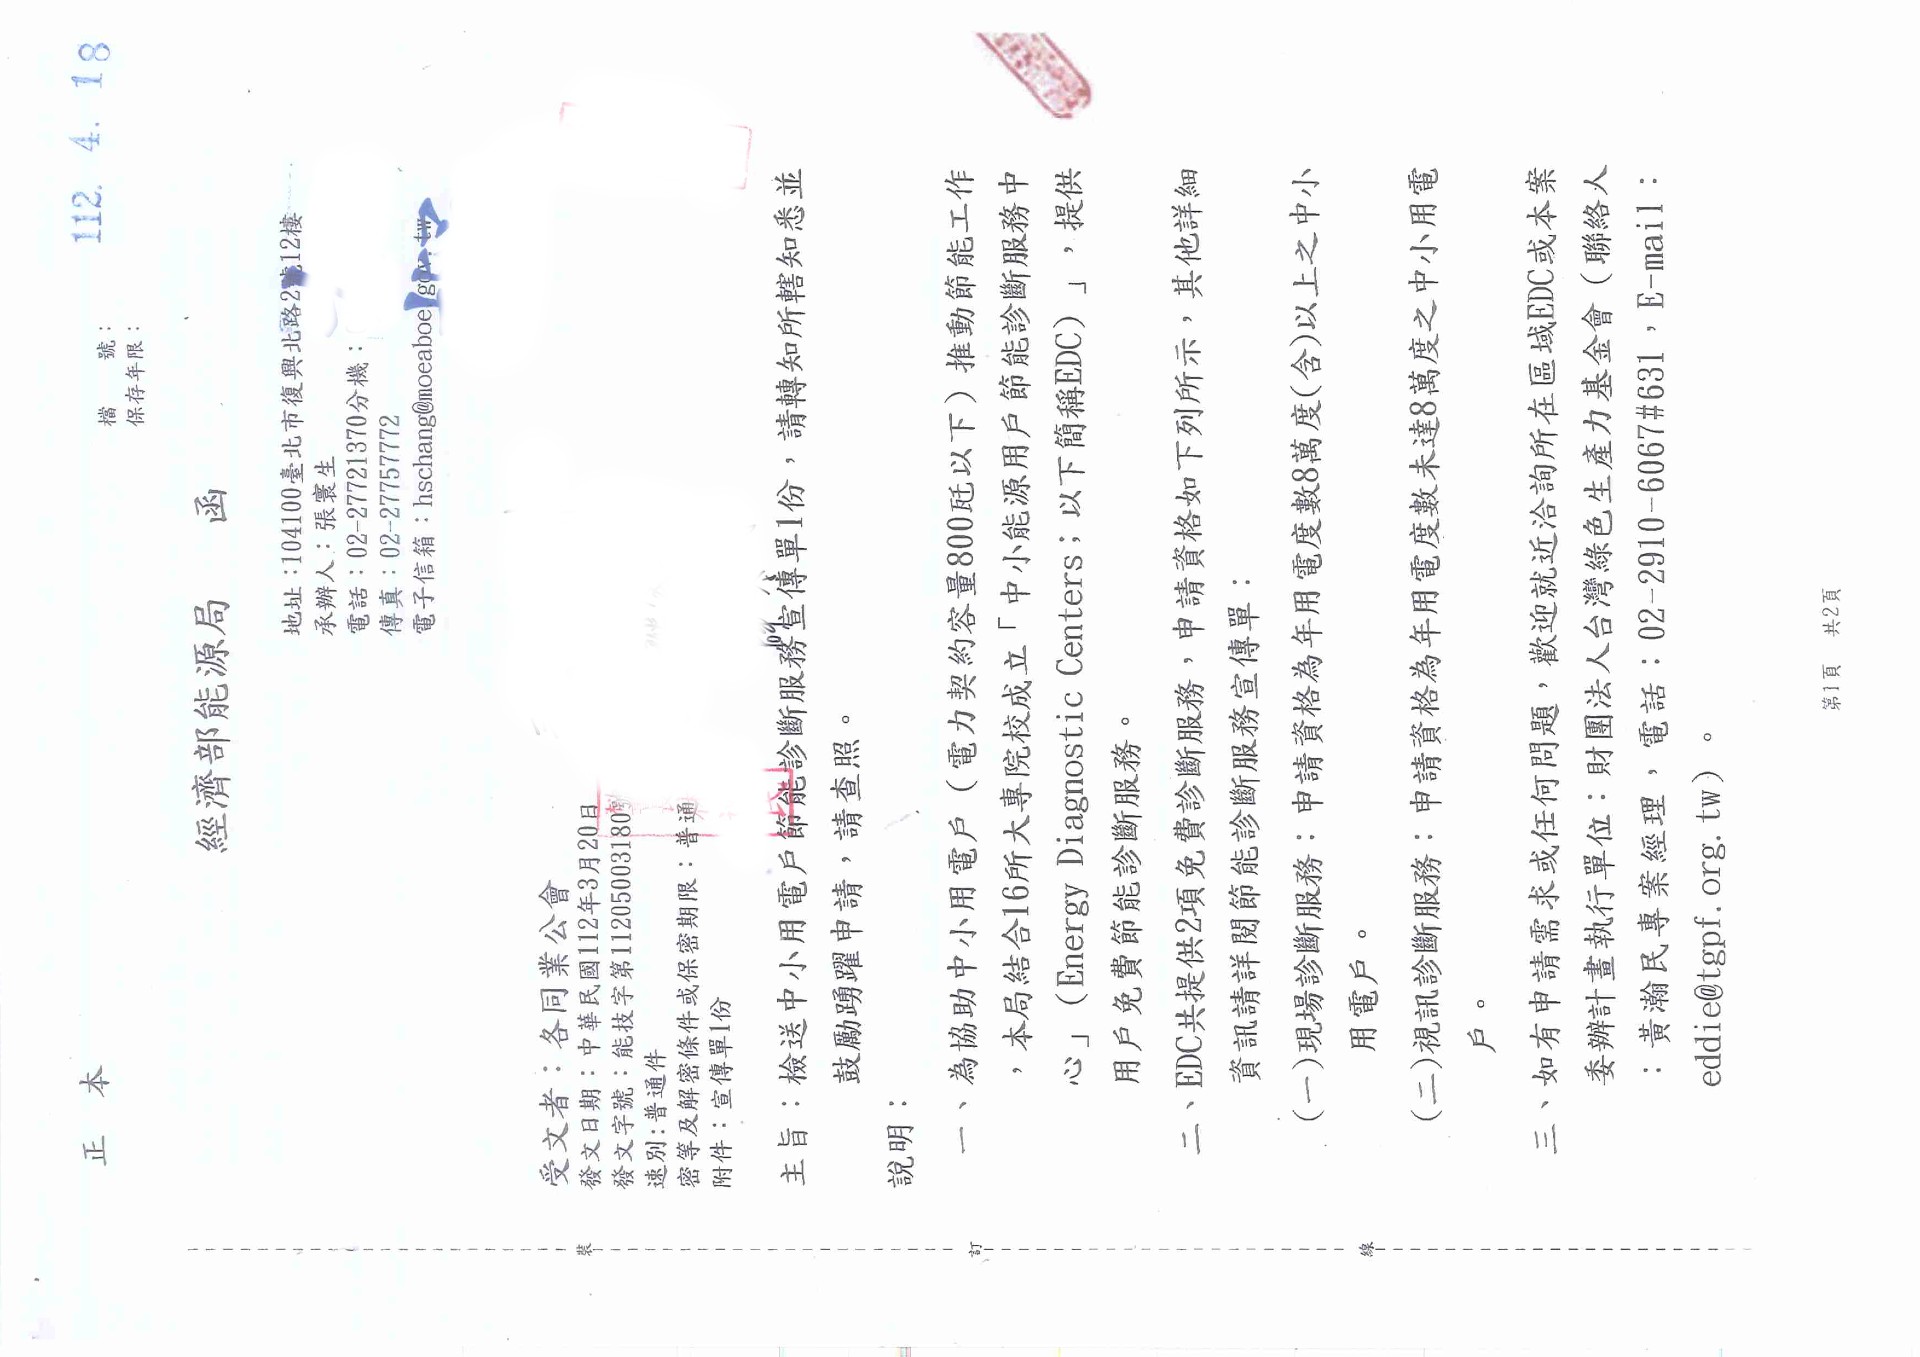 112. 4. 18
檔　　號：
保存年限：
正　本
經濟部能源局　函
地址：104100臺北市復興北路2號12樓
承辦人：張寰生
電話：02-27721370分機：
傳真：02-27757772
電子信箱：hschang@moeaboe.gov.tw
受文者：各同業公會
發文日期：中華民國112年3月20日
發文字號：能技字第11205003180號
速別：普通件
密等及解密條件或保密期限：普通
附件：宣傳單1份
主旨：檢送中小用電戶節能診斷服務宣傳單1份，請轉知所轄知悉並
鼓勵踴躍申請，請查照。
說明：
一、為協助中小用電戶（電力契約容量800瓩以下）推動節能工作
，本局結合16所大專院校成立「中小能源用戶節能診斷服務中
心」（Energy Diagnostic Centers；以下簡稱EDC）」，提供
用戶免費節能診斷服務。
二、EDC共提供2項免費診斷服務，申請資格如下列所示，其他詳細
資訊請詳閱節能診斷服務宣傳單：
(一)現場診斷服務：申請資格為年用電度數8萬度(含)以上之中小
用電戶。
(二)視訊診斷服務：申請資格為年用電度數未達8萬度之中小用電
戶。
三、如有申請需求或任何問題，歡迎就近洽詢所在區域EDC或本案
委辦計畫執行單位：財團法人台灣綠色生產力基金會（聯絡人
：黃瀚民專案經理，電話：02-2910-6067#631，E-mail：
eddie@tgpf.org.tw）。
裝
訂
線
第1頁　共2頁